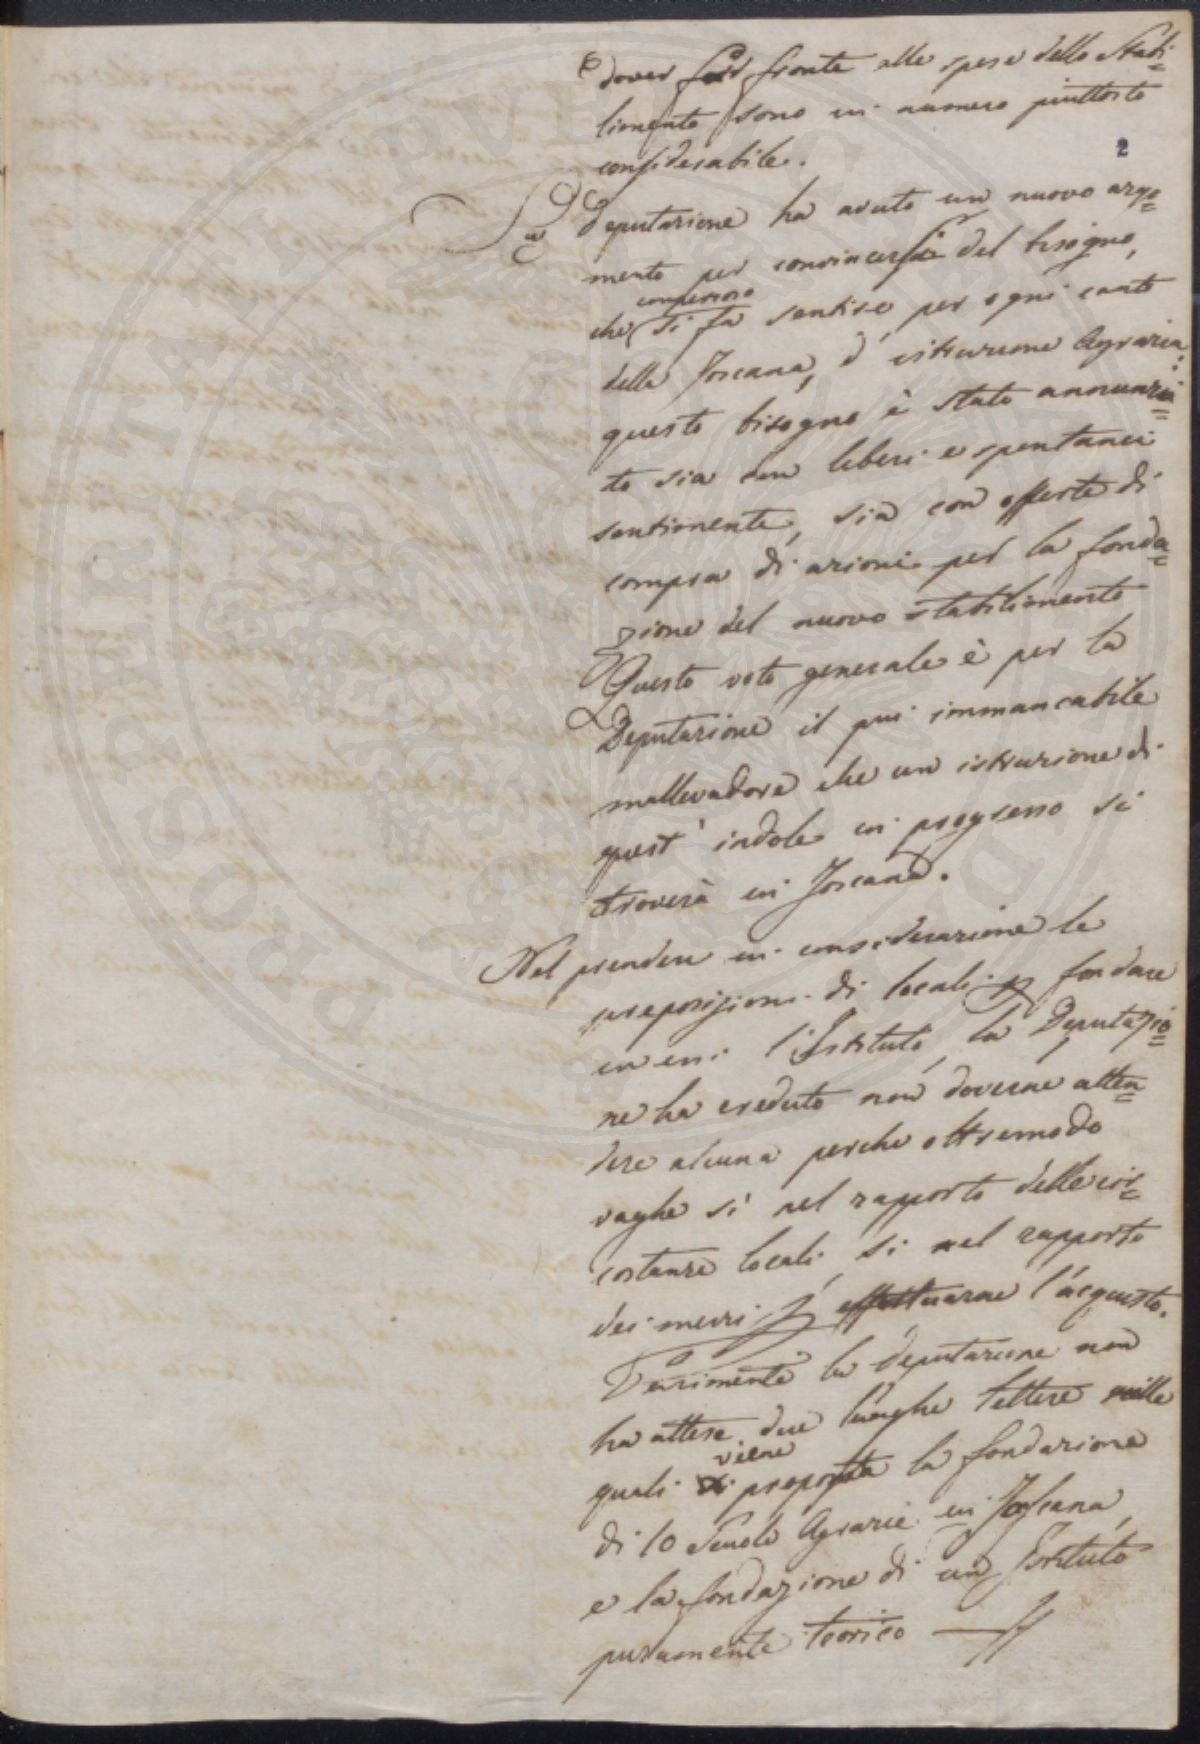 e dover far fronte alle spese dello Stabi-
limento sono in numero piuttosto
considerabile.
2
La Deputazione ha avuto un nuovo argo=
mento per convincersi del bisogno,
che si fa sentire per ogni canto
della Toscana, d'istruzione Agraria:
questo bisogno è stato annunzia=
to sia con liberi e spontanei
sentimenti, sia con offerte di
compra di azioni per la fonda=
zione del nuovo stabilimento
Questo voto generale è per la
Deputazione il più immancabile
mallevadore che un istruzione di
quest' indole in progresso si
troverà in Toscana.
Nel prendere in considerazione le
proposizioni di locali p fondare
in essi l'Istituto, la Deputazio=
ne ha creduto non doverne atten=
dere alcuna perche oltremodo
vaghe sì nel rapporto delle cir=
costanze locali, sì nel rapporto
dei mezzi p effettuarne l'acquisto.
Parimente la deputazione non
ha attese due lunghe lettere nelle
quali viene proposta la fondazione
di 10 Scuole Agrarie in Toscana,
e la fondazione di un Istituto
puramente teorico